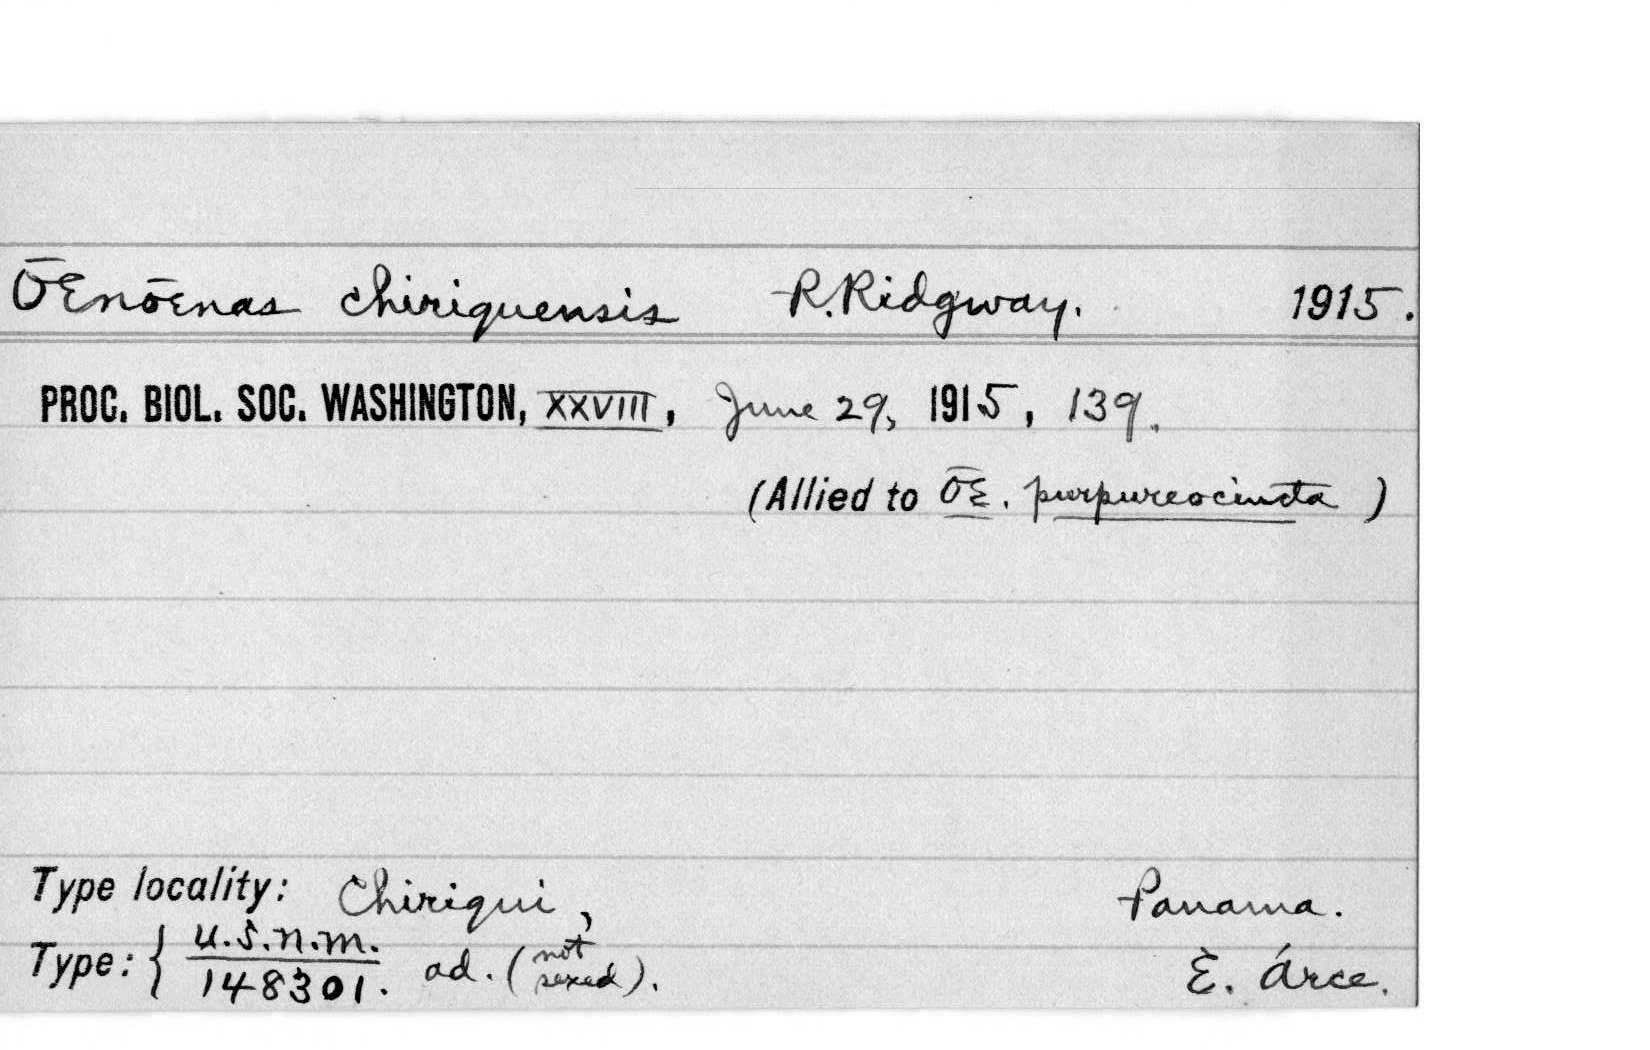 Œnœnas chiriquensis R. Ridgway. 1915.
PROC. BIOL. SOC. WASHINGTON, XXVIII, June 29, 1915, 139.
(Allied to Œ. purpureocincta)
Type locality: Chiriqui, Panama.
Type: { U.S.N.M. 148301. ad. (not sexed). E. Arcé.